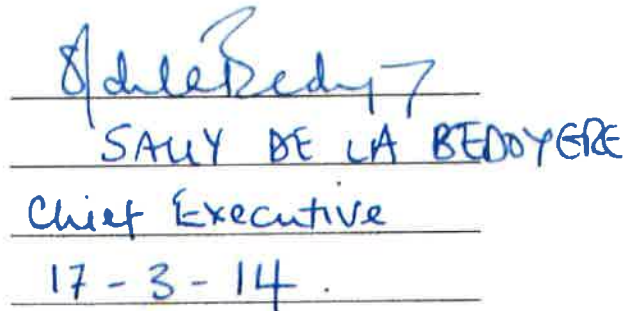 SALLY DE LA BEDOYERE
Chief Executive
17 - 3 - 14 .